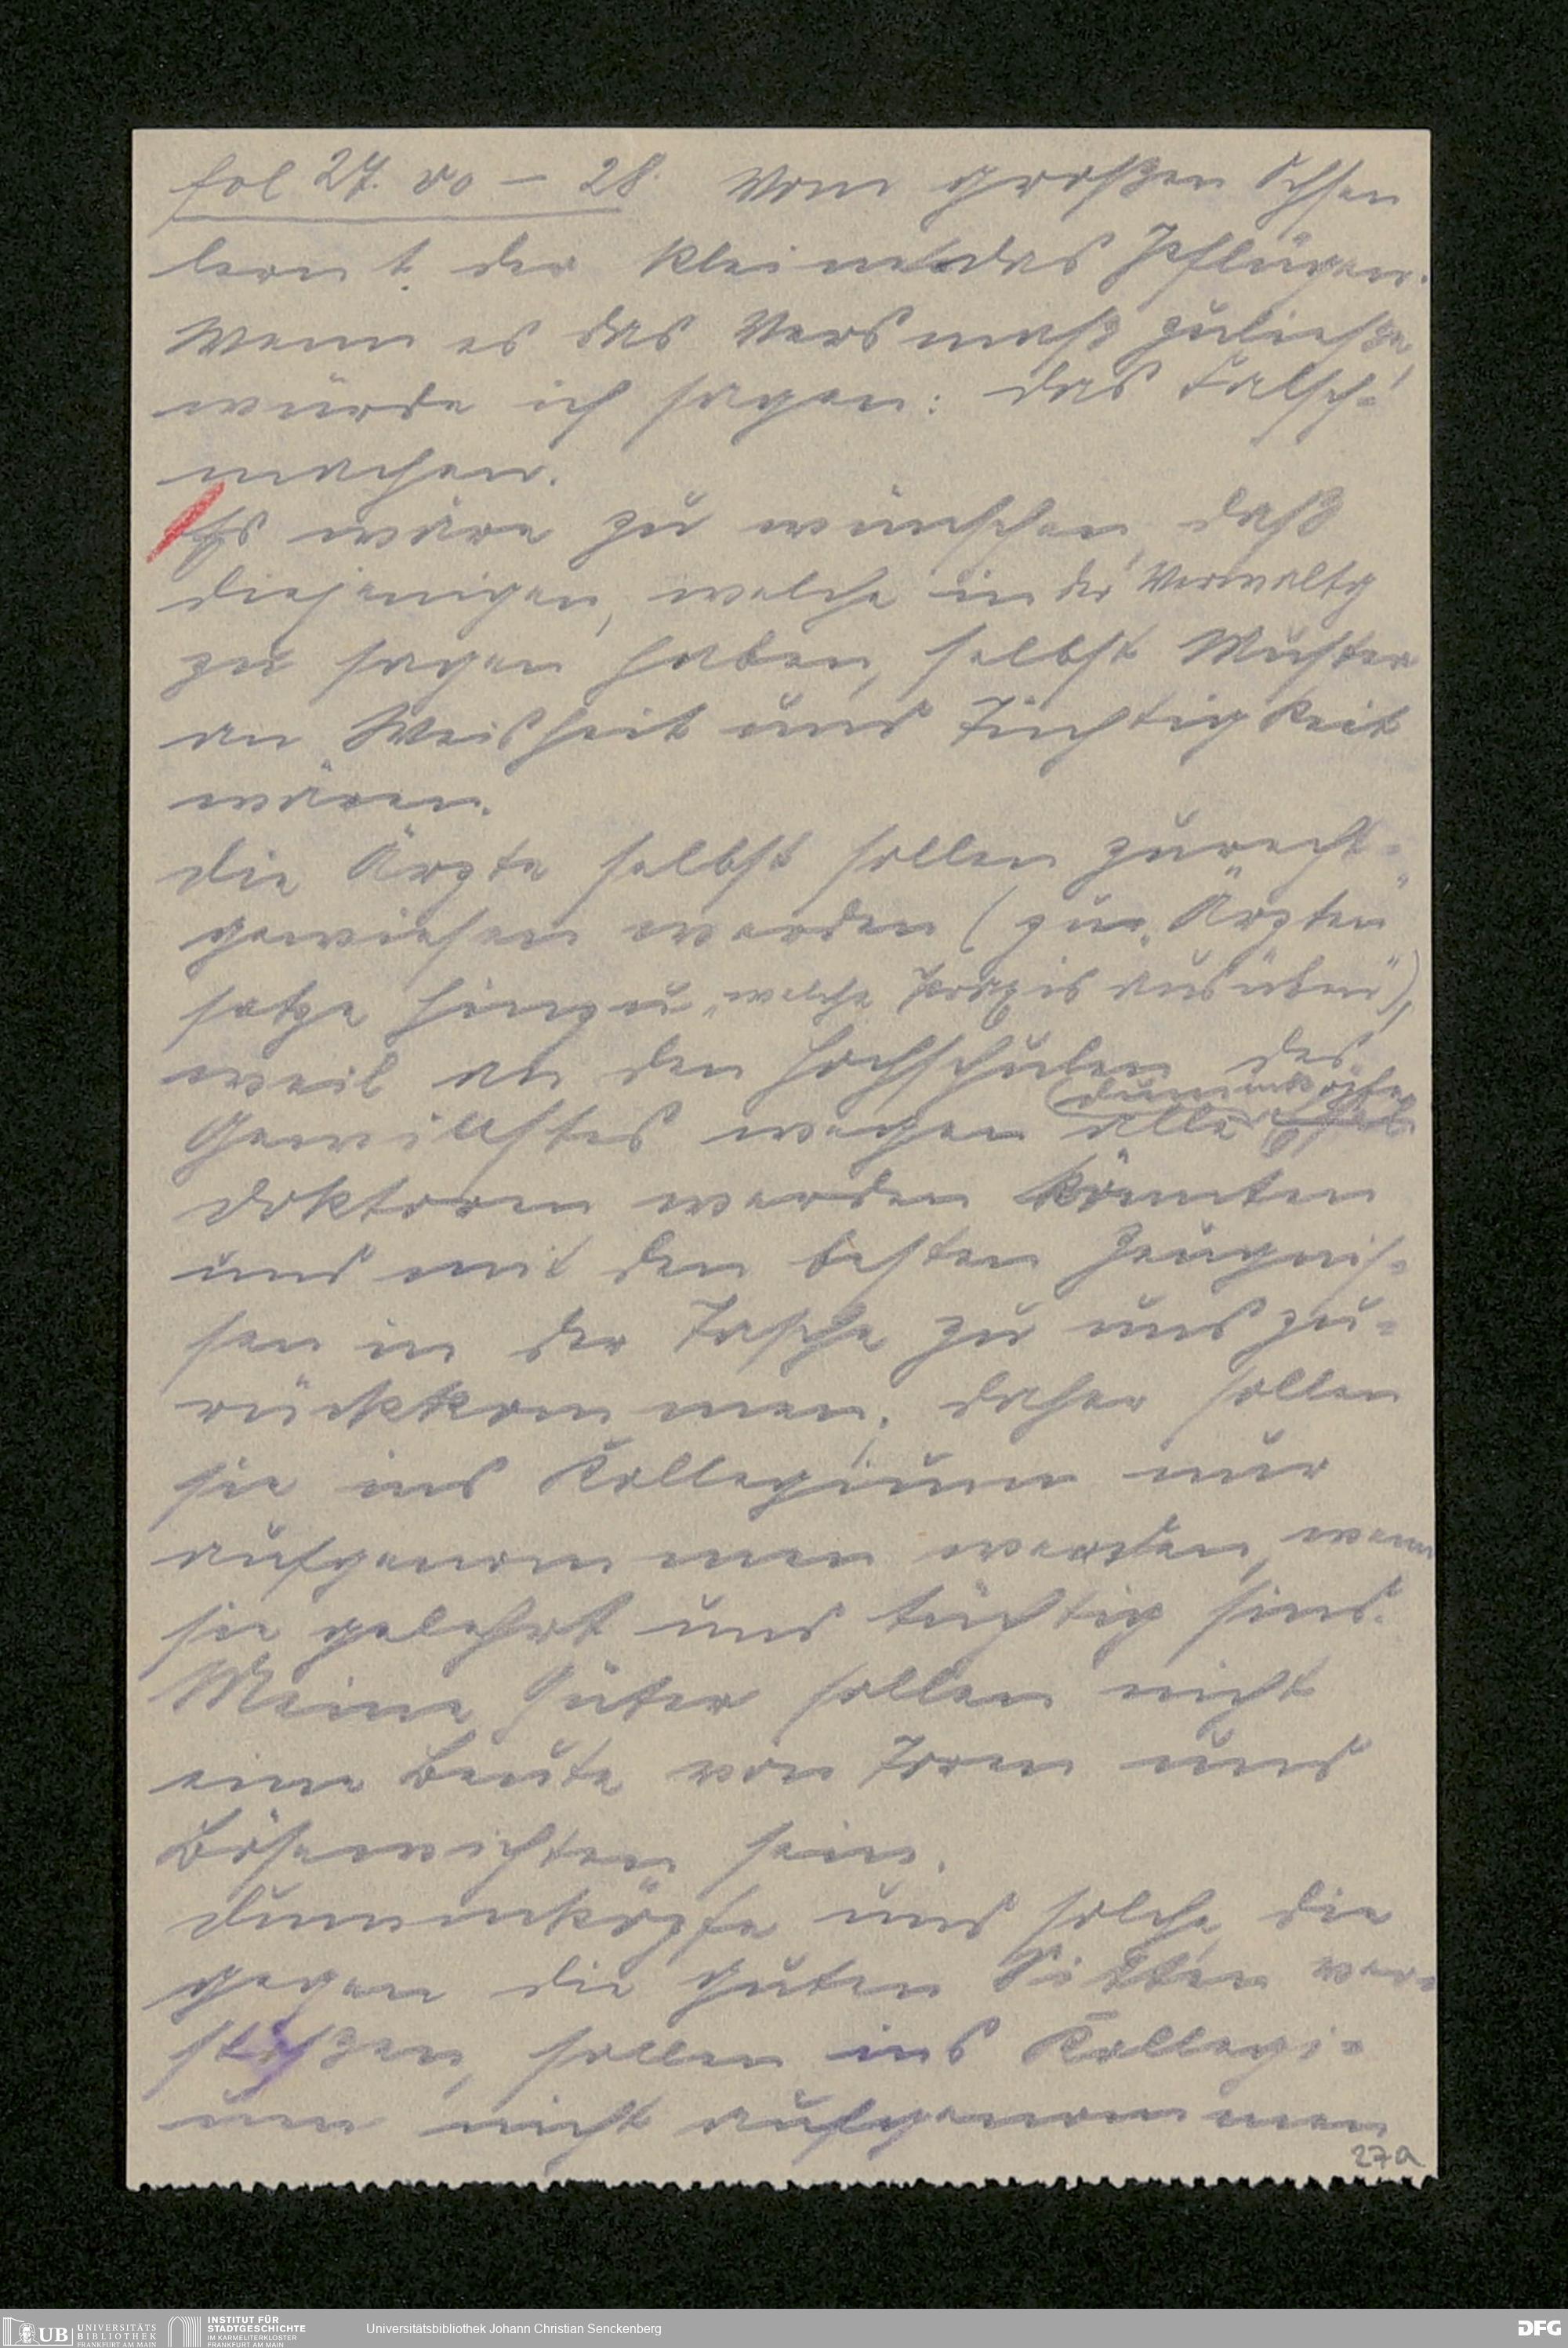 fol 27. vo – 28. Vom großen Ochsen
lernt der kleine das Pflügen.
Wenn es das Versmaß zuließe,
würde ich sagen: das Falsch-
machen.
Es wäre zu wünschen, daß
diejenigen, welche in der Verwaltg
zu sagen haben, selbst Muster
an Weisheit und Tüchtigkeit
wären.
Die Ärzte selbst sollen zurecht-
gewiesen werden (zu „Ärzten"
setze hinzu „welche Praxis ausüben"),
weil an den Hochschulen des
Gewinstes wegen alle
Dummköpfe
Doktoren werden könnten
und mit den besten Zeugnis-
sen in der Tasche zu uns zu-
rückkommen; daher sollen
sie ins Kollegium nur
aufgenommen werden, wenn
sie gelehrt und tüchtig sind.
Meine Güter sollen nicht
eine Beute von Toren und
Bösewichten sein.
Dummköpfe und solche, die
gegen die guten Sitten ver-
stoßen, sollen ins Kollegi-
um nicht aufgenommen
27a
UB UNIVERSITÄTS
BIBLIOTHEK
FRANKFURT AM MAIN
INSTITUT FÜR
STADTGESCHICHTE
IM KARMELITERKLOSTER
FRANKFURT AM MAIN
Universitätsbibliothek Johann Christian Senckenberg
DFG